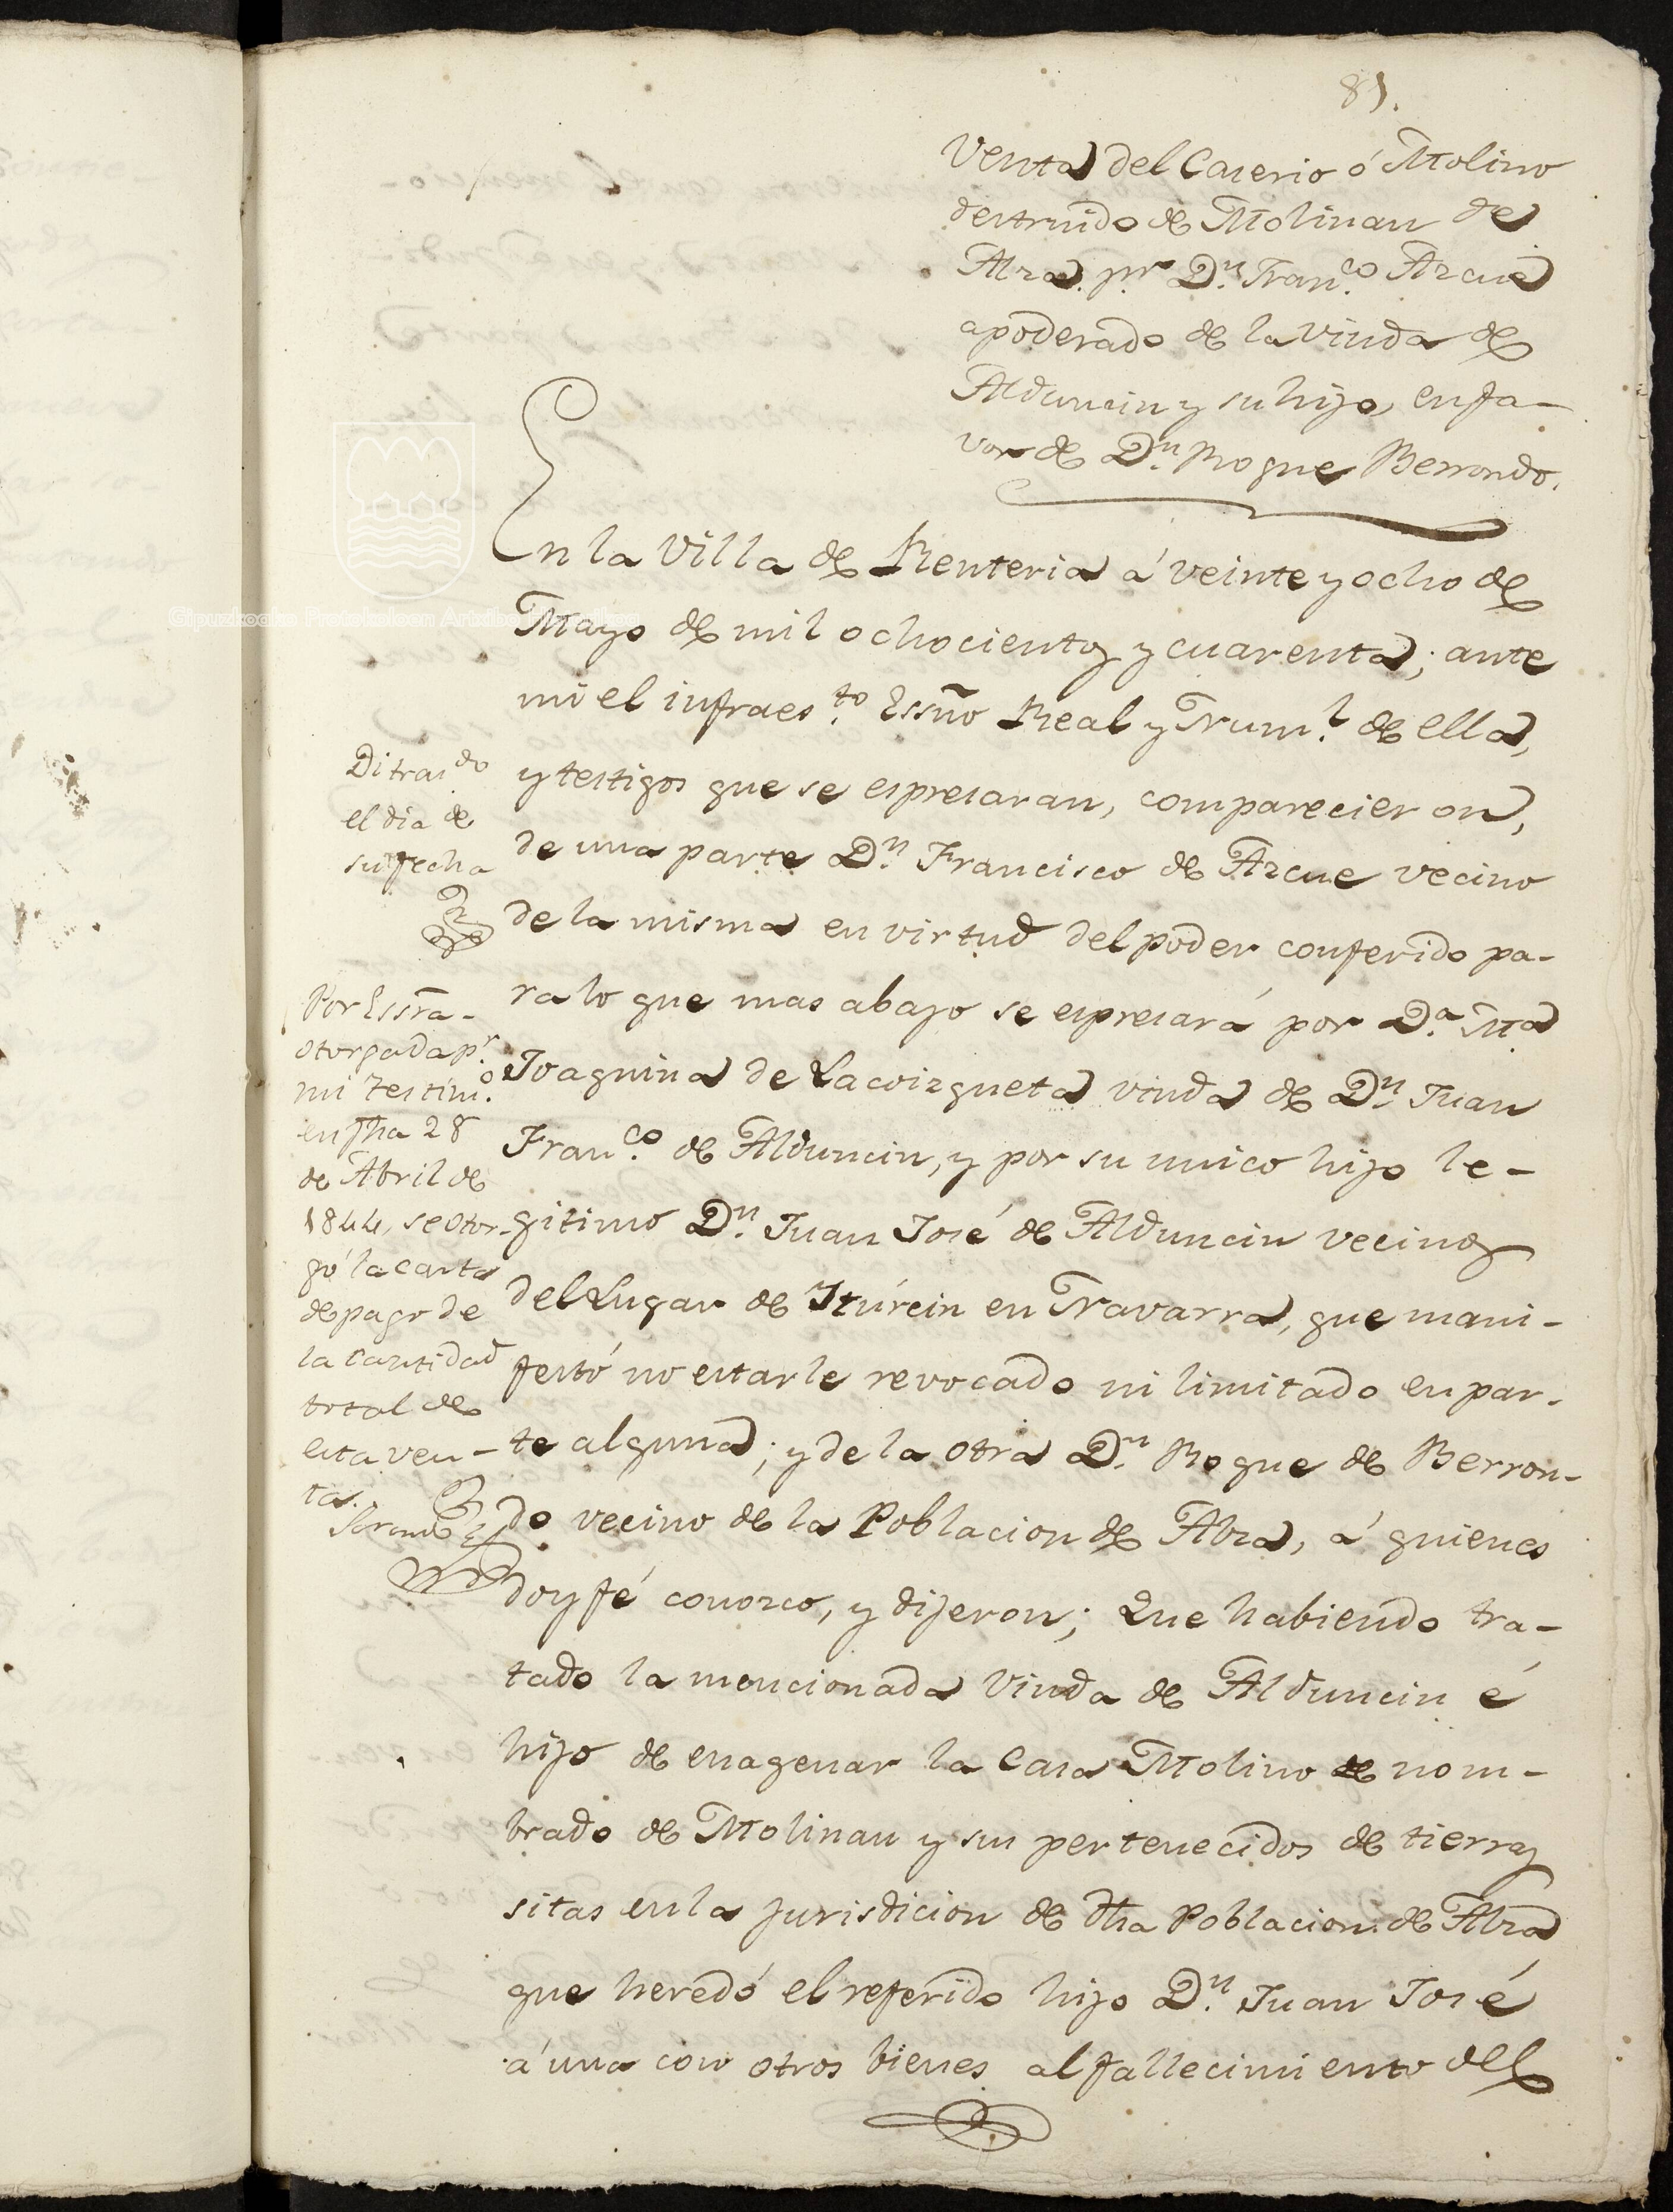 81.
Venta del Caserio ó Molino
destruido de Molinau de
Alza pr. Dn. Franco. Arcue
apoderado de la Viuda de
Alduncin y su hijo, en fa-
vor de Dn. Roque Berrondo.
En la Villa de Renteria á veinte y ocho de
Mayo de mil ochocientos y cuarenta; ante
mi el infraesto. Essño Real y Numl. de ella,
y testigos que se espresaran, comparecieron,
de una parte Dn. Francisco de Arcue vecino
de la misma en virtud del poder conferido pa-
ra lo que mas abajo se espresará por Da. Ma
Joaquina de Lacoizqueta viuda de Dn. Juan
Franco. de Alduncin, y por su unico hijo le-
gitimo Dn. Juan José de Alduncin vecinos
del Lugar de Itúrcin en Navarra, que mani-
festó no estarle revocado ni limitado en par-
te alguna; y de la otra Dn. Roque de Berron-
do vecino de la Poblacion de Alza, á quienes
doy fé conozco, y dijeron; Que habiendo tra-
tado la mencionada Viuda de Alduncin é
hijo de enagenar la Casa Molino de nom-
brado de Molinau y sus pertenecidos de tierras
sitas en la jurisdicion de dha Poblacion de Alza
que heredó el referido hijo Dn. Juan José
á una con otros bienes al fallecimiento del
Di trasdo.
el dia de
su fecha
Por Essra-
otorgada pr.
mi testimo.
en fha 28
de Abril de
1844, se otor-
gó la carta
de pago de
la cantidad
total de
esta ven-
ta.
Gipuzkoako Protokoloen Artxibo Historikoa